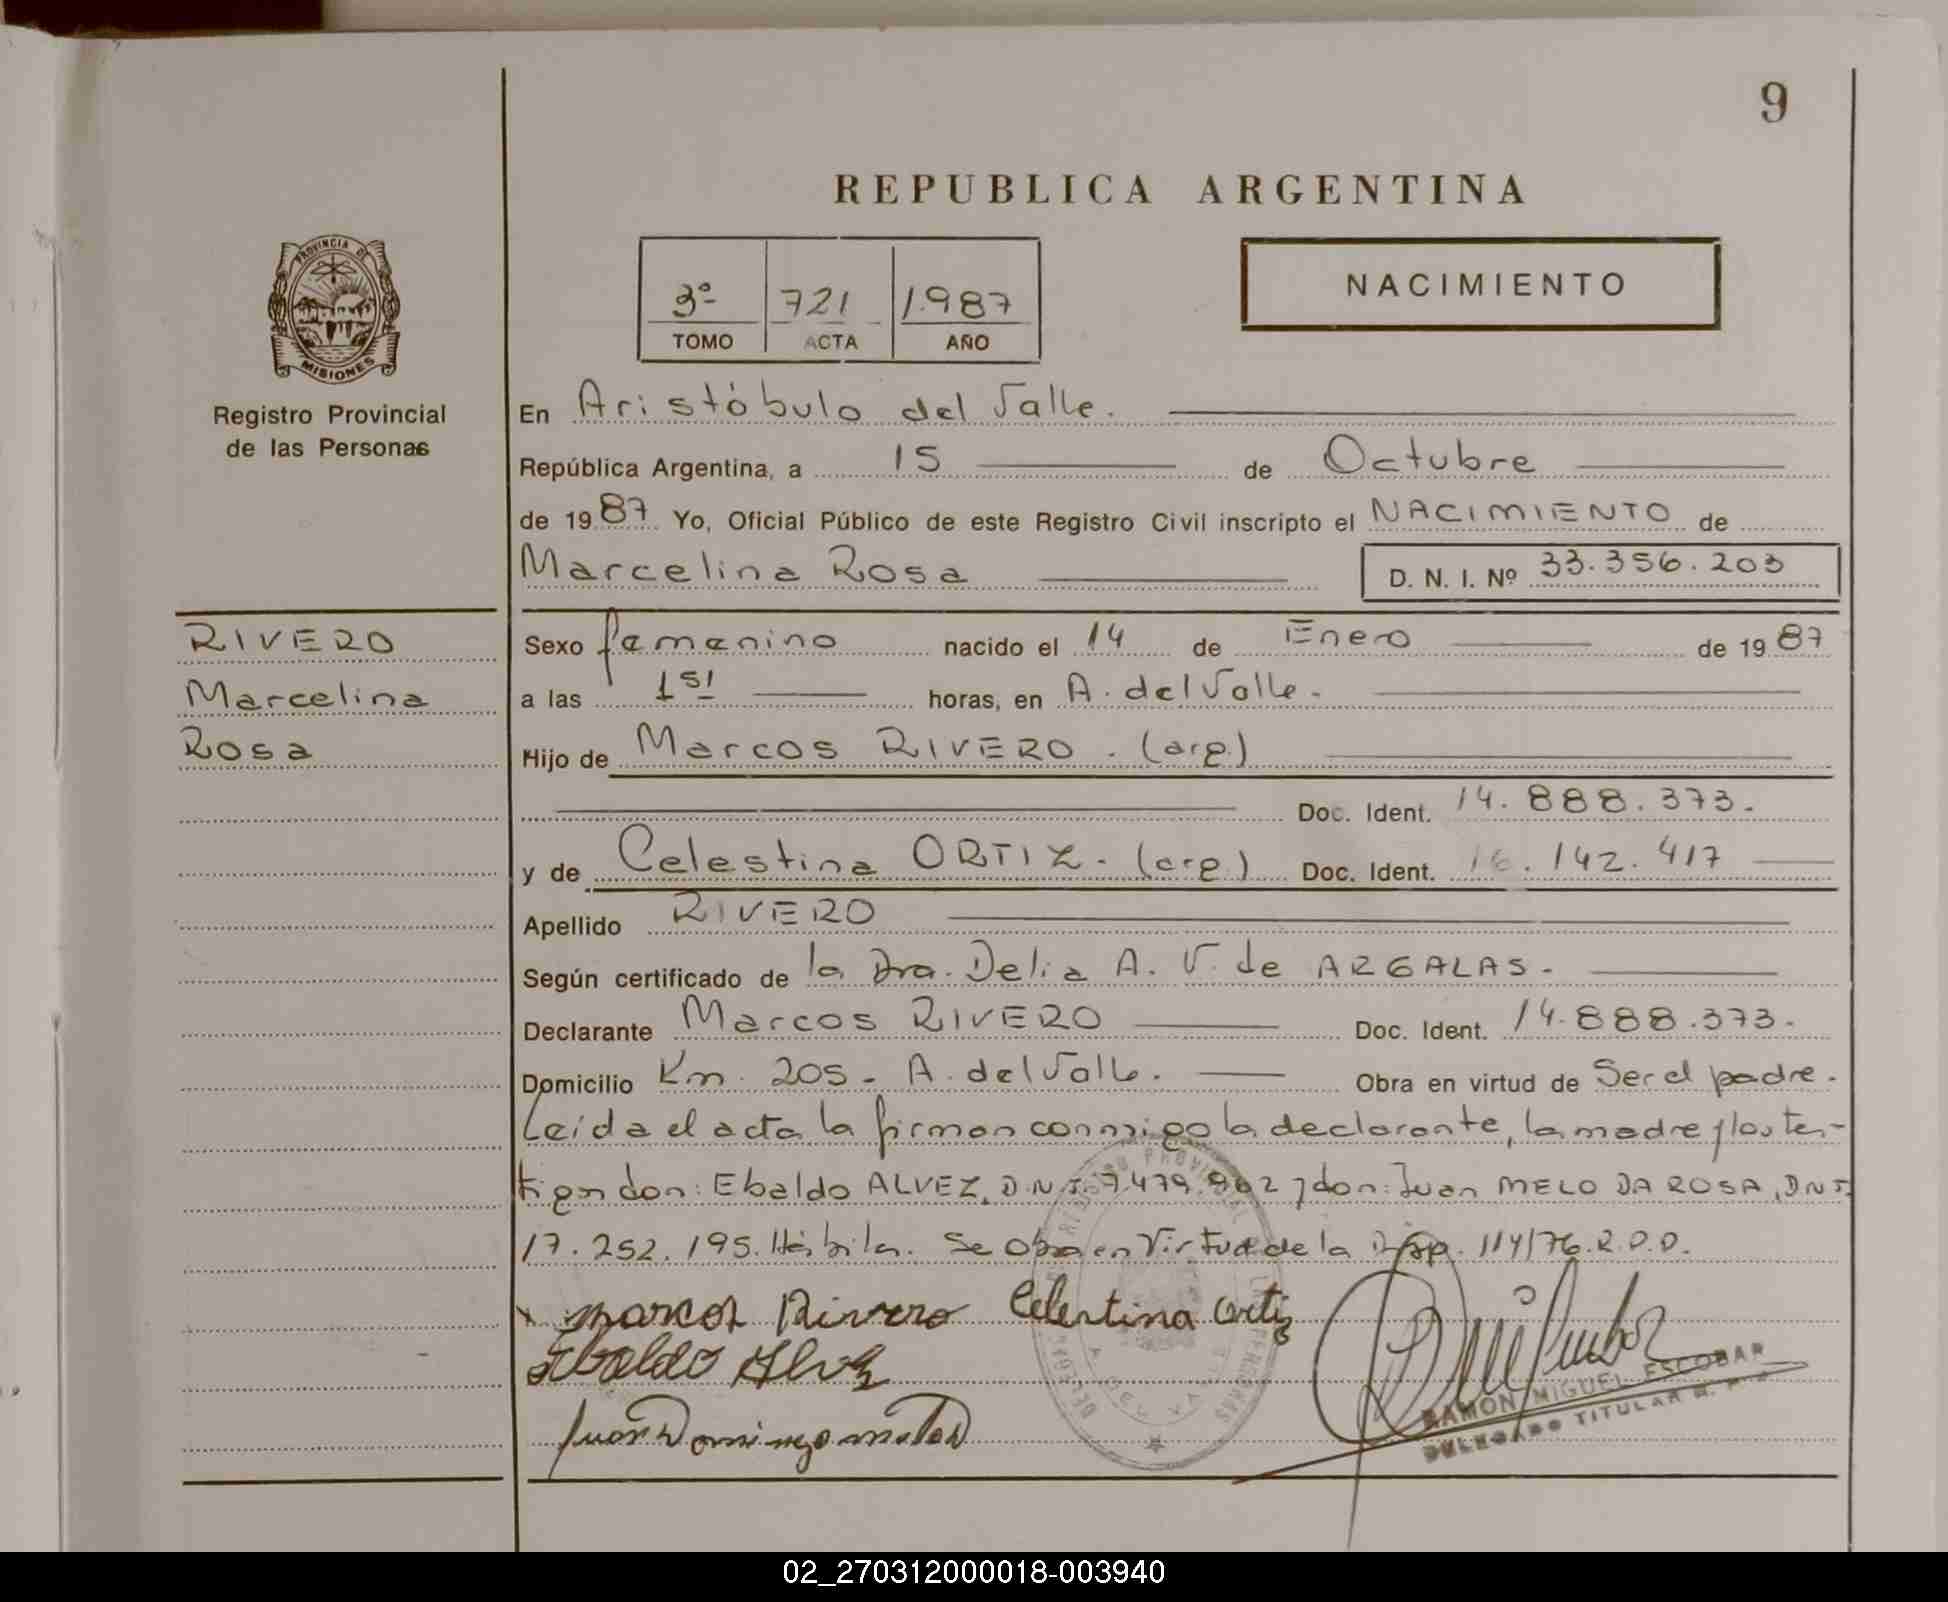 9
REPUBLICA ARGENTINA
PROVINCIA DE
MISIONES
Registro Provincial
de las Personas
3º 721 1.987
TOMO ACTA AÑO
NACIMIENTO
En Aristóbulo del Valle.
República Argentina, a 15 de Octubre
de 1987 Yo, Oficial Público de este Registro Civil inscripto el NACIMIENTO de
Marcelina Rosa D. N. I. Nº 33.356.203
RIVERO
Marcelina
Rosa
Sexo femenino nacido el 14 de Enero de 1987
a las horas, en A. del Valle.
Hijo de Marcos RIVERO. (arg.)
Doc. Ident. 14.888.373.
y de Celestina ORTIZ. (arg.) Doc. Ident. 16.142.417
Apellido RIVERO
Según certificado de la Dra. Delia A. V. de ARGALAS.
Declarante Marcos RIVERO Doc. Ident. 14.888.373.
Domicilio Km. 205. A. del Valle. Obra en virtud de Ser el padre.
Leída el acta la firman conmigo la declarante, la madre y los tes-
tigos don: Ebaldo ALVEZ, D.N.I. 7.479.902 y don: Juan MELO DA ROSA, D.N.I.
17.252.195. Hábiles. Se obra en Virtud de la Disp. 114/76. R.P.P.
x Marcos Rivero Celestina Ortiz
Ebaldo Alvez
Juan Domingo
RAMON MIGUEL ESCOBAR
DELEGADO TITULAR
02_270312000018-003940